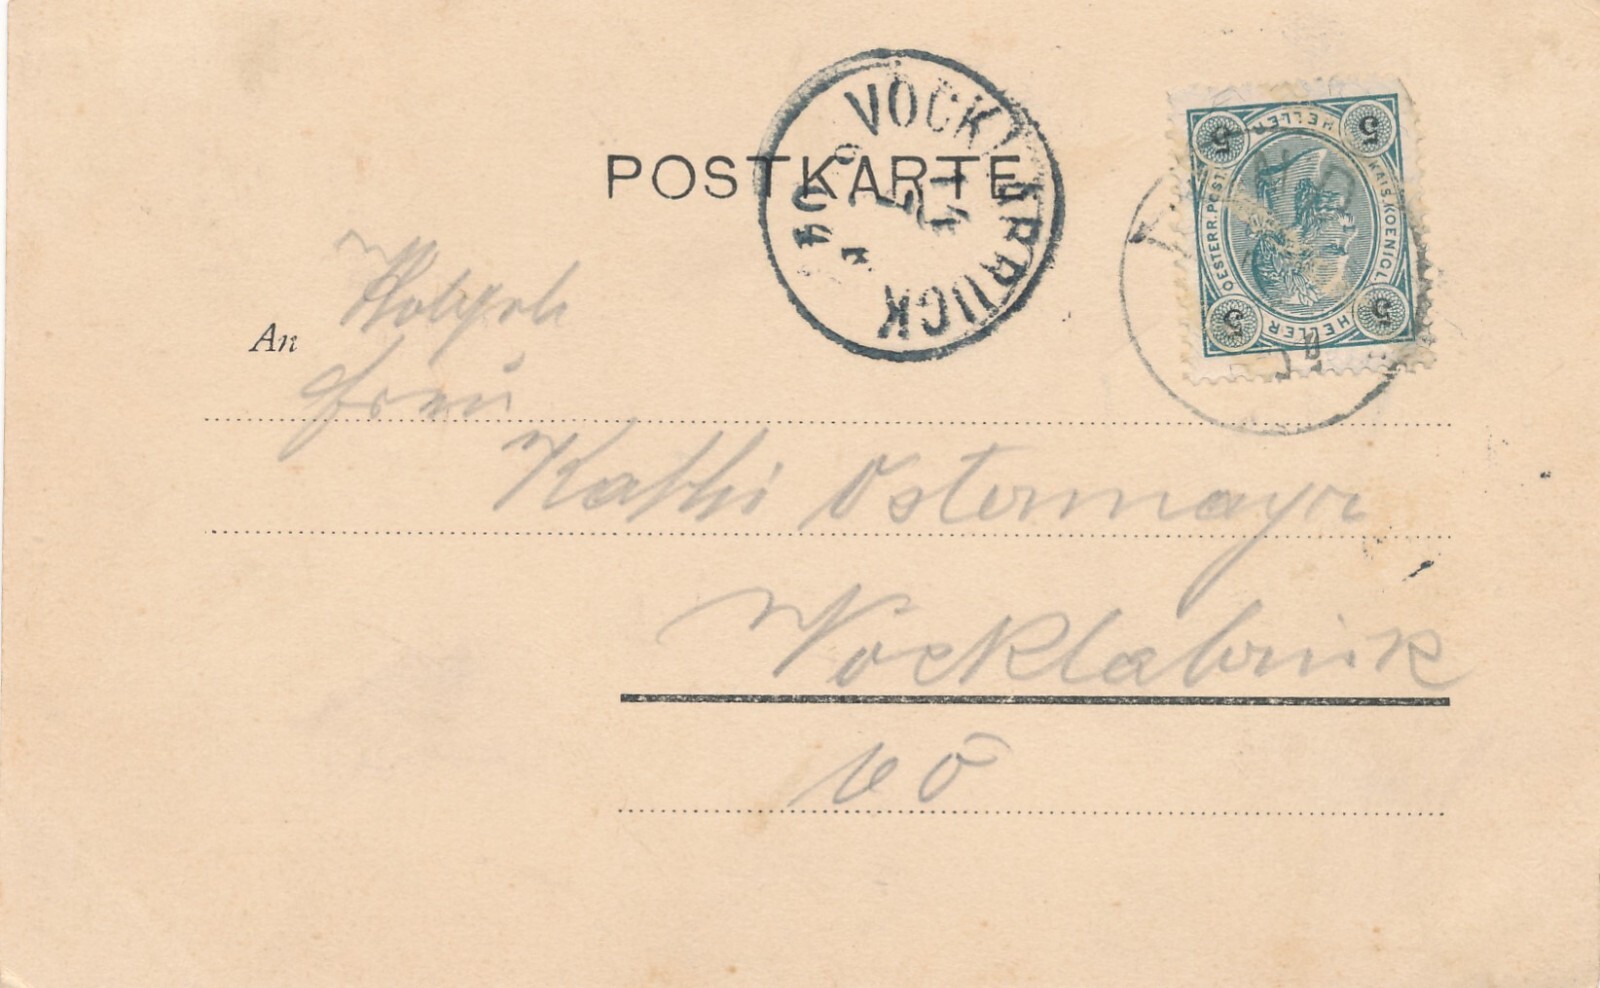 POSTKARTE
VÖCKLABRUCK
04
An
Frau
Kathi Ostermayr
Vöcklabruck
OÖ
5 HELLER 5
OESTERR. POST.
KAIS. KOENIGL.
5 HELLER 5